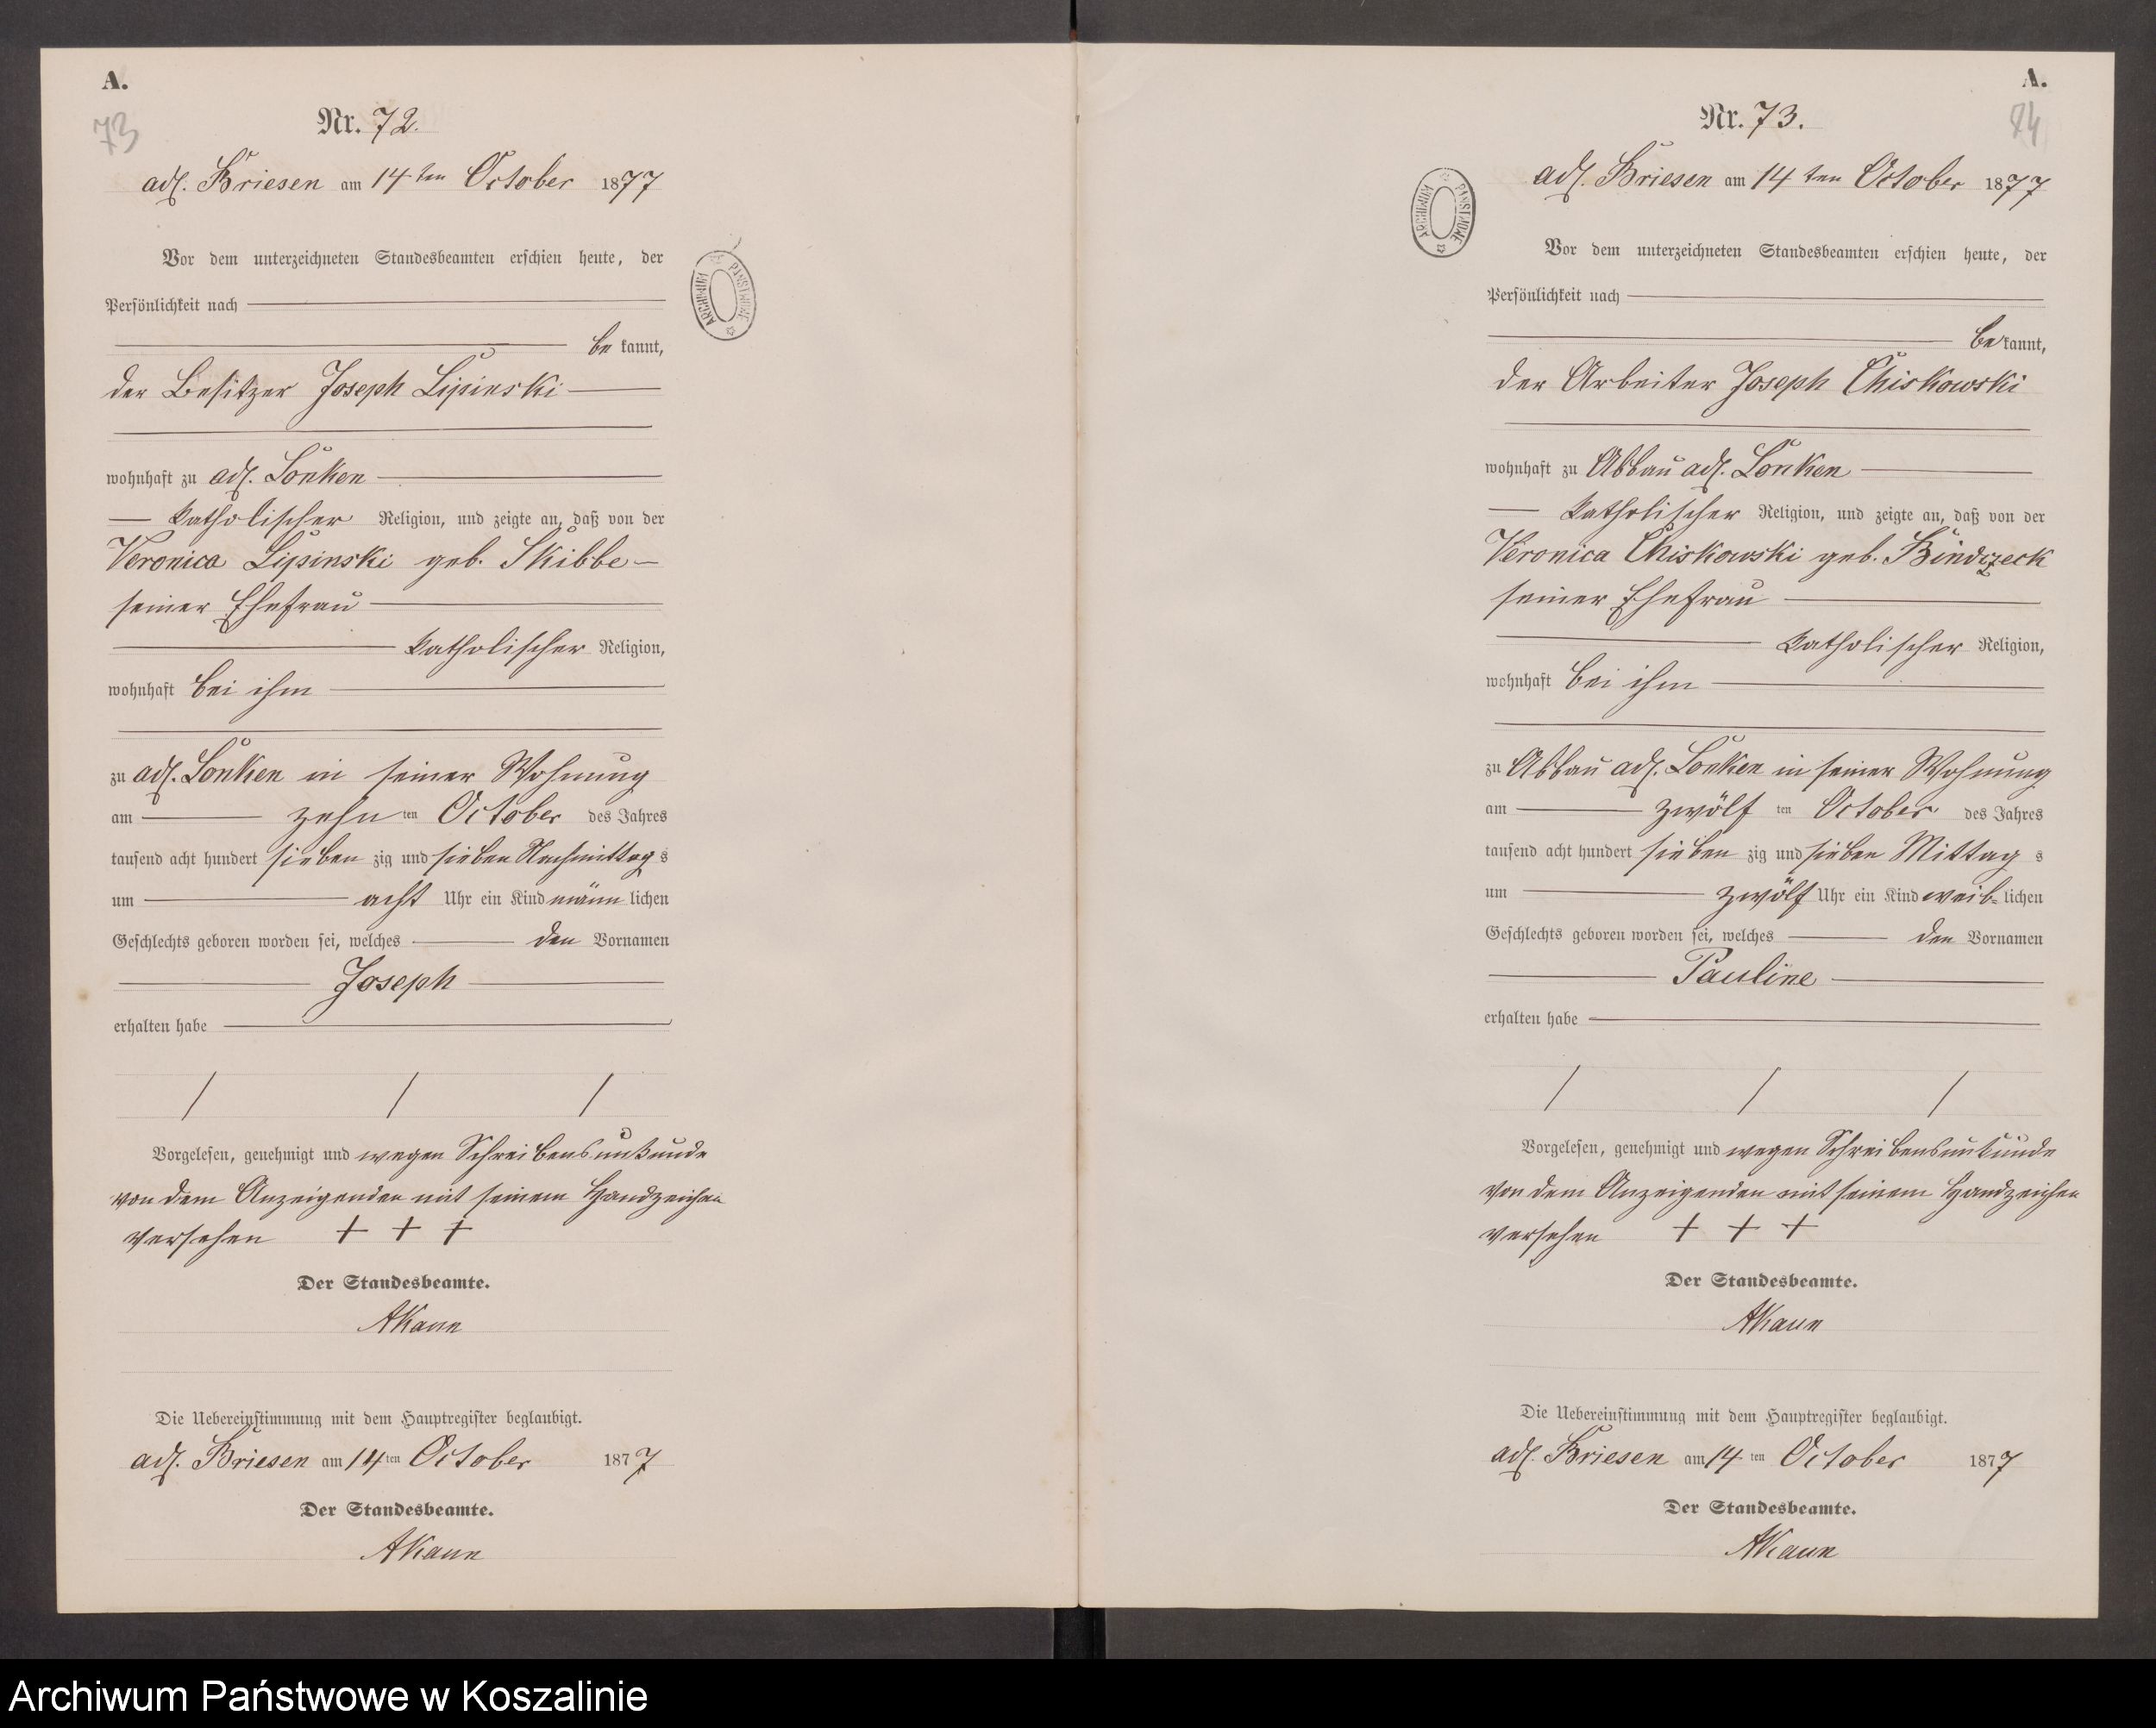 A.
73
Nr. 72.
adl. Briesen am 14ten October 1877
Vor dem unterzeichneten Standesbeamten erschien heute, der
Persönlichkeit nach
be kannt,
der Besitzer Joseph Lipinski
wohnhaft zu adl. Lonken
katholischer Religion, und zeigte an, daß von der
Veronica Lipinski geb. Skibbe
seiner Ehefrau
katholischer Religion,
wohnhaft bei ihm
zu adl. Lonken in seiner Wohnung
am zehn ten October des Jahres
tausend acht hundert sieben zig und sieben Nachmittag s
um acht Uhr ein Kind männ lichen
Geschlechts geboren worden sei, welches den Vornamen
Joseph
erhalten habe
Vorgelesen, genehmigt und wegen Schreibensunkunde
von dem Anzeigenden mit seinem Handzeichen
versehen + + +
Der Standesbeamte.
AKann
Die Uebereinstimmung mit dem Hauptregister beglaubigt.
adl. Briesen am 14ten October 1877
Der Standesbeamte.
AKann
ARCHIWUM PAŃSTWOWE
A.
74
Nr. 73.
adl. Briesen am 14ten October 1877
ARCHIWUM PAŃSTWOWE
Vor dem unterzeichneten Standesbeamten erschien heute, der
Persönlichkeit nach
be kannt,
der Arbeiter Joseph Chiskowski
wohnhaft zu Abbau adl. Lonken
katholischer Religion, und zeigte an, daß von der
Veronica Chiskowski geb. Bindczeck
seiner Ehefrau
katholischer Religion,
wohnhaft bei ihm
zu Abbau adl. Lonken in seiner Wohnung
am zwölf ten October des Jahres
tausend acht hundert sieben zig und sieben Mittag s
um zwölf Uhr ein Kind weib= lichen
Geschlechts geboren worden sei, welches den Vornamen
Pauline
erhalten habe
Vorgelesen, genehmigt und wegen Schreibensunkunde
von dem Anzeigenden mit seinem Handzeichen
versehen + + +
Der Standesbeamte.
AKann
Die Uebereinstimmung mit dem Hauptregister beglaubigt.
adl. Briesen am 14 ten October 1877
Der Standesbeamte.
AKann
Archiwum Państwowe w Koszalinie